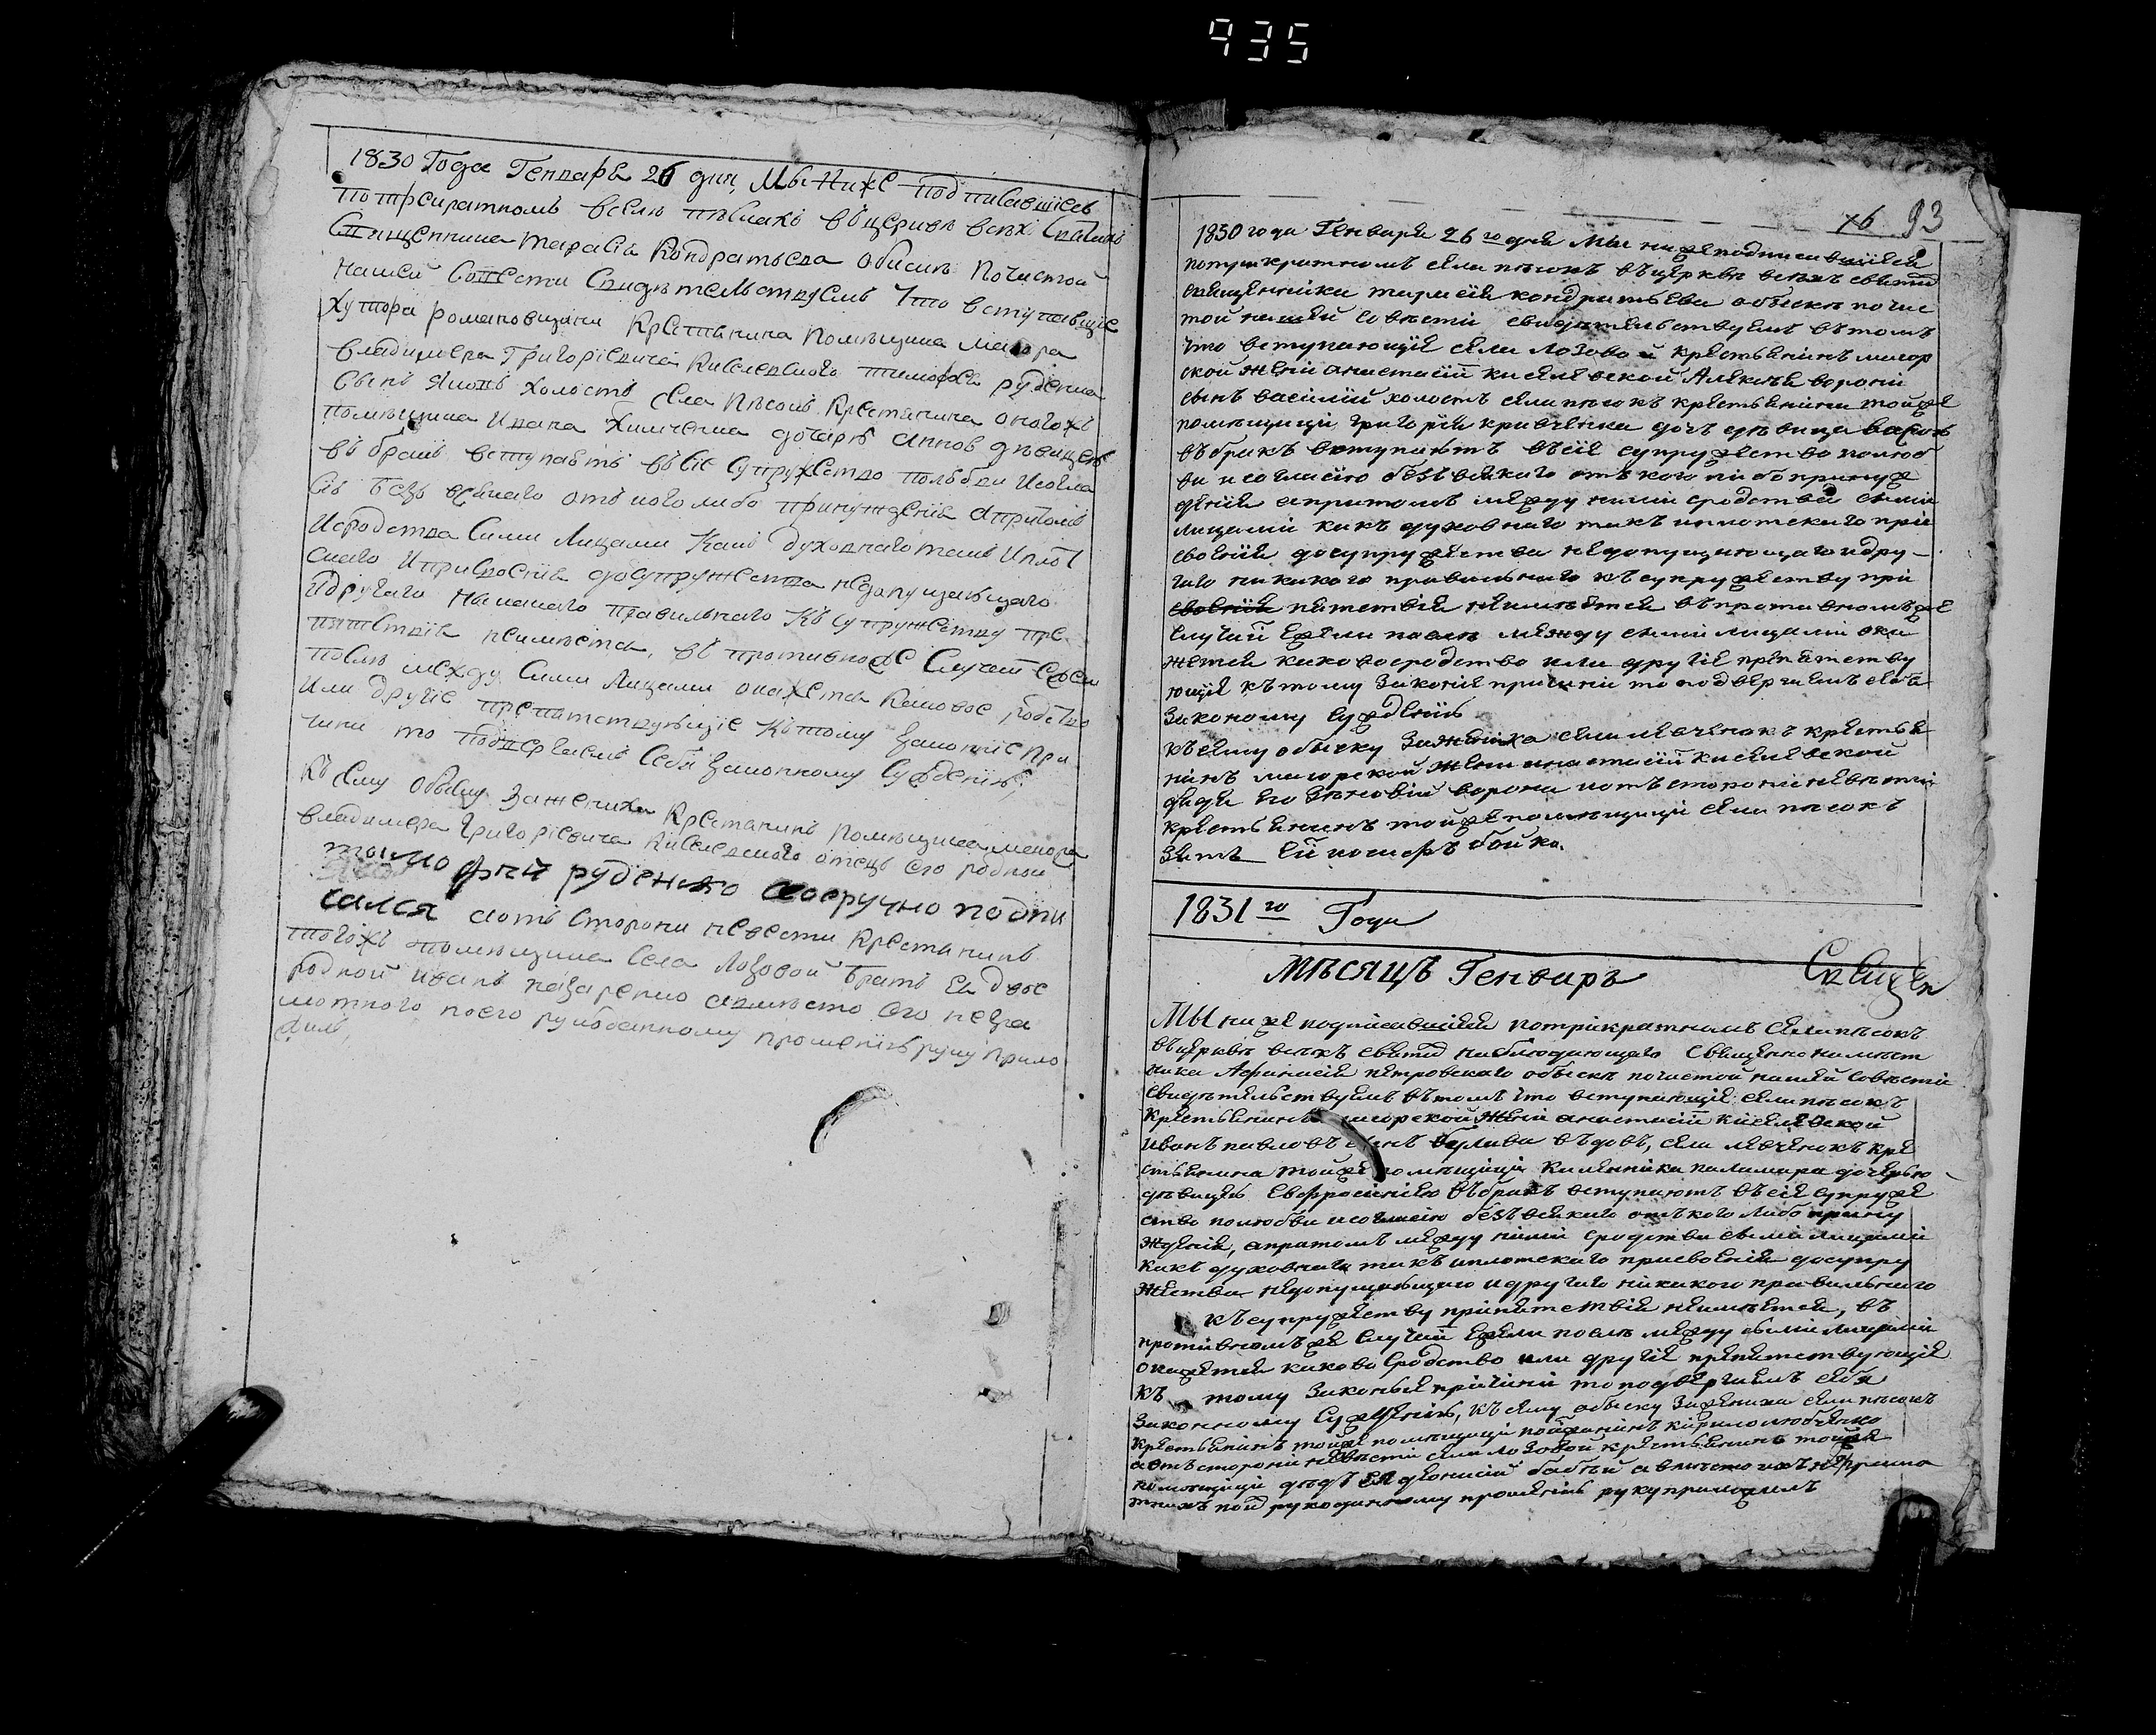 935
1830 Года Генваря 26 дня, Мы Ниже подписавшіесь
потрикратномъ вселѣ пѣскахъ вЪцеркви всѣх Святихъ
Священника тарасія Кондратьева обиску Почистой
нашей Совести Свидѣтельствуемъ Что вступающіе
Хутора романовщини Крестянина Помѣщика маиора
владимера Григоріевича Киселевского тимофея руденка
Сынъ холостъ Села Пѣсокъ Крестянина оногожъ
помѣщика Ивана дочерю анною дѣвицею
въ бракъ вступаютъ въ Сіе Супружество полюбви Исогла
Сію безъ всякаго отъ кого либо принужденія апритомъ
Исродства Сими Лицами Какъ духовнаго такъ Иплот
скаго Иприсвоенія досупружества недопущающаго
Идругаго никакого правильнаго Къ Супружеству пре
пятствія неимѣется, въ противном же Случаи Ежели
послѣ между Сими Лицами окажется Каковое родство
Или другіе препятствующіе Кътому Законніе При
чини то подвергаемъ Себя Законному Сужденію;
Къ Сему обыску Зажениха Крестянинъ Помѣщика маиора
владимера Григоріевича Киселевского отецъ его родной
тимофѣй руденко своеручно подпи
сался аотъ Сторони невести Крестянинъ
тогожъ помѣщика Села Лозовой братъ Ея двое
родной иванъ назаренко авмѣсто его негра
мотного поего рукоданному прошенію руку прило
жилъ,
76 93
1830 года Генваря 26 го дня Мы нижеподписавшіеся
потрикратномъ села пѣсокъ въцерквѣ всѣхъ святих
священника тарасія кондратьева обыскѣ почис
той нашей совѣсти свидѣтельствуемъ вътомъ
что вступающіе села лозовой крестьянинъ маіор
ской жени анастасіи киселевской Алексѣя ворони
сынъ василій холостъ села пѣсокъ крестьянина тойже
помѣщици григорія кривенка доч дѣвица
въбракъ вступаютъ въсіе супружество полюб
ви исогласію безъвсякаго отъкого либо принуж
денія апритомъ между ними сродства сими
лицами какъ духовнаго такъ иплотскаго при
своенія досупружества недопущающаго идру-
гаго никакого правильнаго къ супружеству при
пятствія неимѣется въпротивномъже
Случаи Ежели послѣ между сими лицами ока
жется каковосродство или другіе препятству
ющіе кътому Законіе причини то подвергаемъ себя
Законому Сужденію
къ сему обыску Зажениха села левченокъ крестья
нинъ маіорской жени анастасіи киселевской
дядя его Зѣновій ворона иотъ сторони невѣсти
крестьянинъ тойже помѣщици села пѣсокъ
Зять Ей іосифъ бойко.
1831 го Года
Мѣсяцъ Генваръ Священ
Мы нижеподписавшіеся потрикратномъ села пѣсокъ
въцерквѣ всѣхъ святих наблюдающаго Священно намѣст
ника Афанасія петровскаго обыскѣ почистой нашей Совѣсти
Свидѣтельствуемъ вътомъ что вступающіе села пѣсокъ
крестьянинъ маіорской жени анастасіи киселевской
иванъ павловъ сынъ вдовъ, села левченокъ кре
стьянина тойже помѣщици дочерью
дѣвицею Евфросиніею въбракъ вступаютъ въсіе супруже
ство полюбви исогласію безъвсякаго отъкого либо прину
жденія, апритомъ между ними сродства сими лицами
какъ духовнаго такъ иплотскаго присвоенія досупру
жества недопущающаго идругаго никакого правильнаго
къ супружеству припятствія неимѣется, въ
противномъже Случаи Ежели послѣ между сими лицами
окажется каково Сродство или другіе препятствующіе
къ тому Законые причини то подвергаемъ себя
Законному Сужденію, къ сему обыску Зажениха села пѣсокъ
крестьянинъ тойже помѣщици кирило
аотъ сторони невѣсти села лозовой крестьянинъ тойже
помѣщици дядя Ея авмѣсто ихъ неграмо
тнихъ поих рукоданному прошенію руку приложилъ